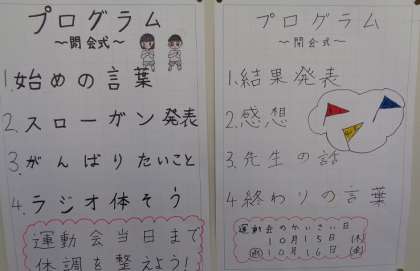 プログラム
～開会式～
1.始めの言葉
2.スローガン発表
3.がんばりたいこと
4.ラジオ体そう
運動会当日まで
体調を整えよう!
プログラム
～閉会式～
1.結果発表
2.感想
3.先生の話
4.終わりの言葉
運動会のかいさい日
10月15日(木)
(雨)10月16日(金)